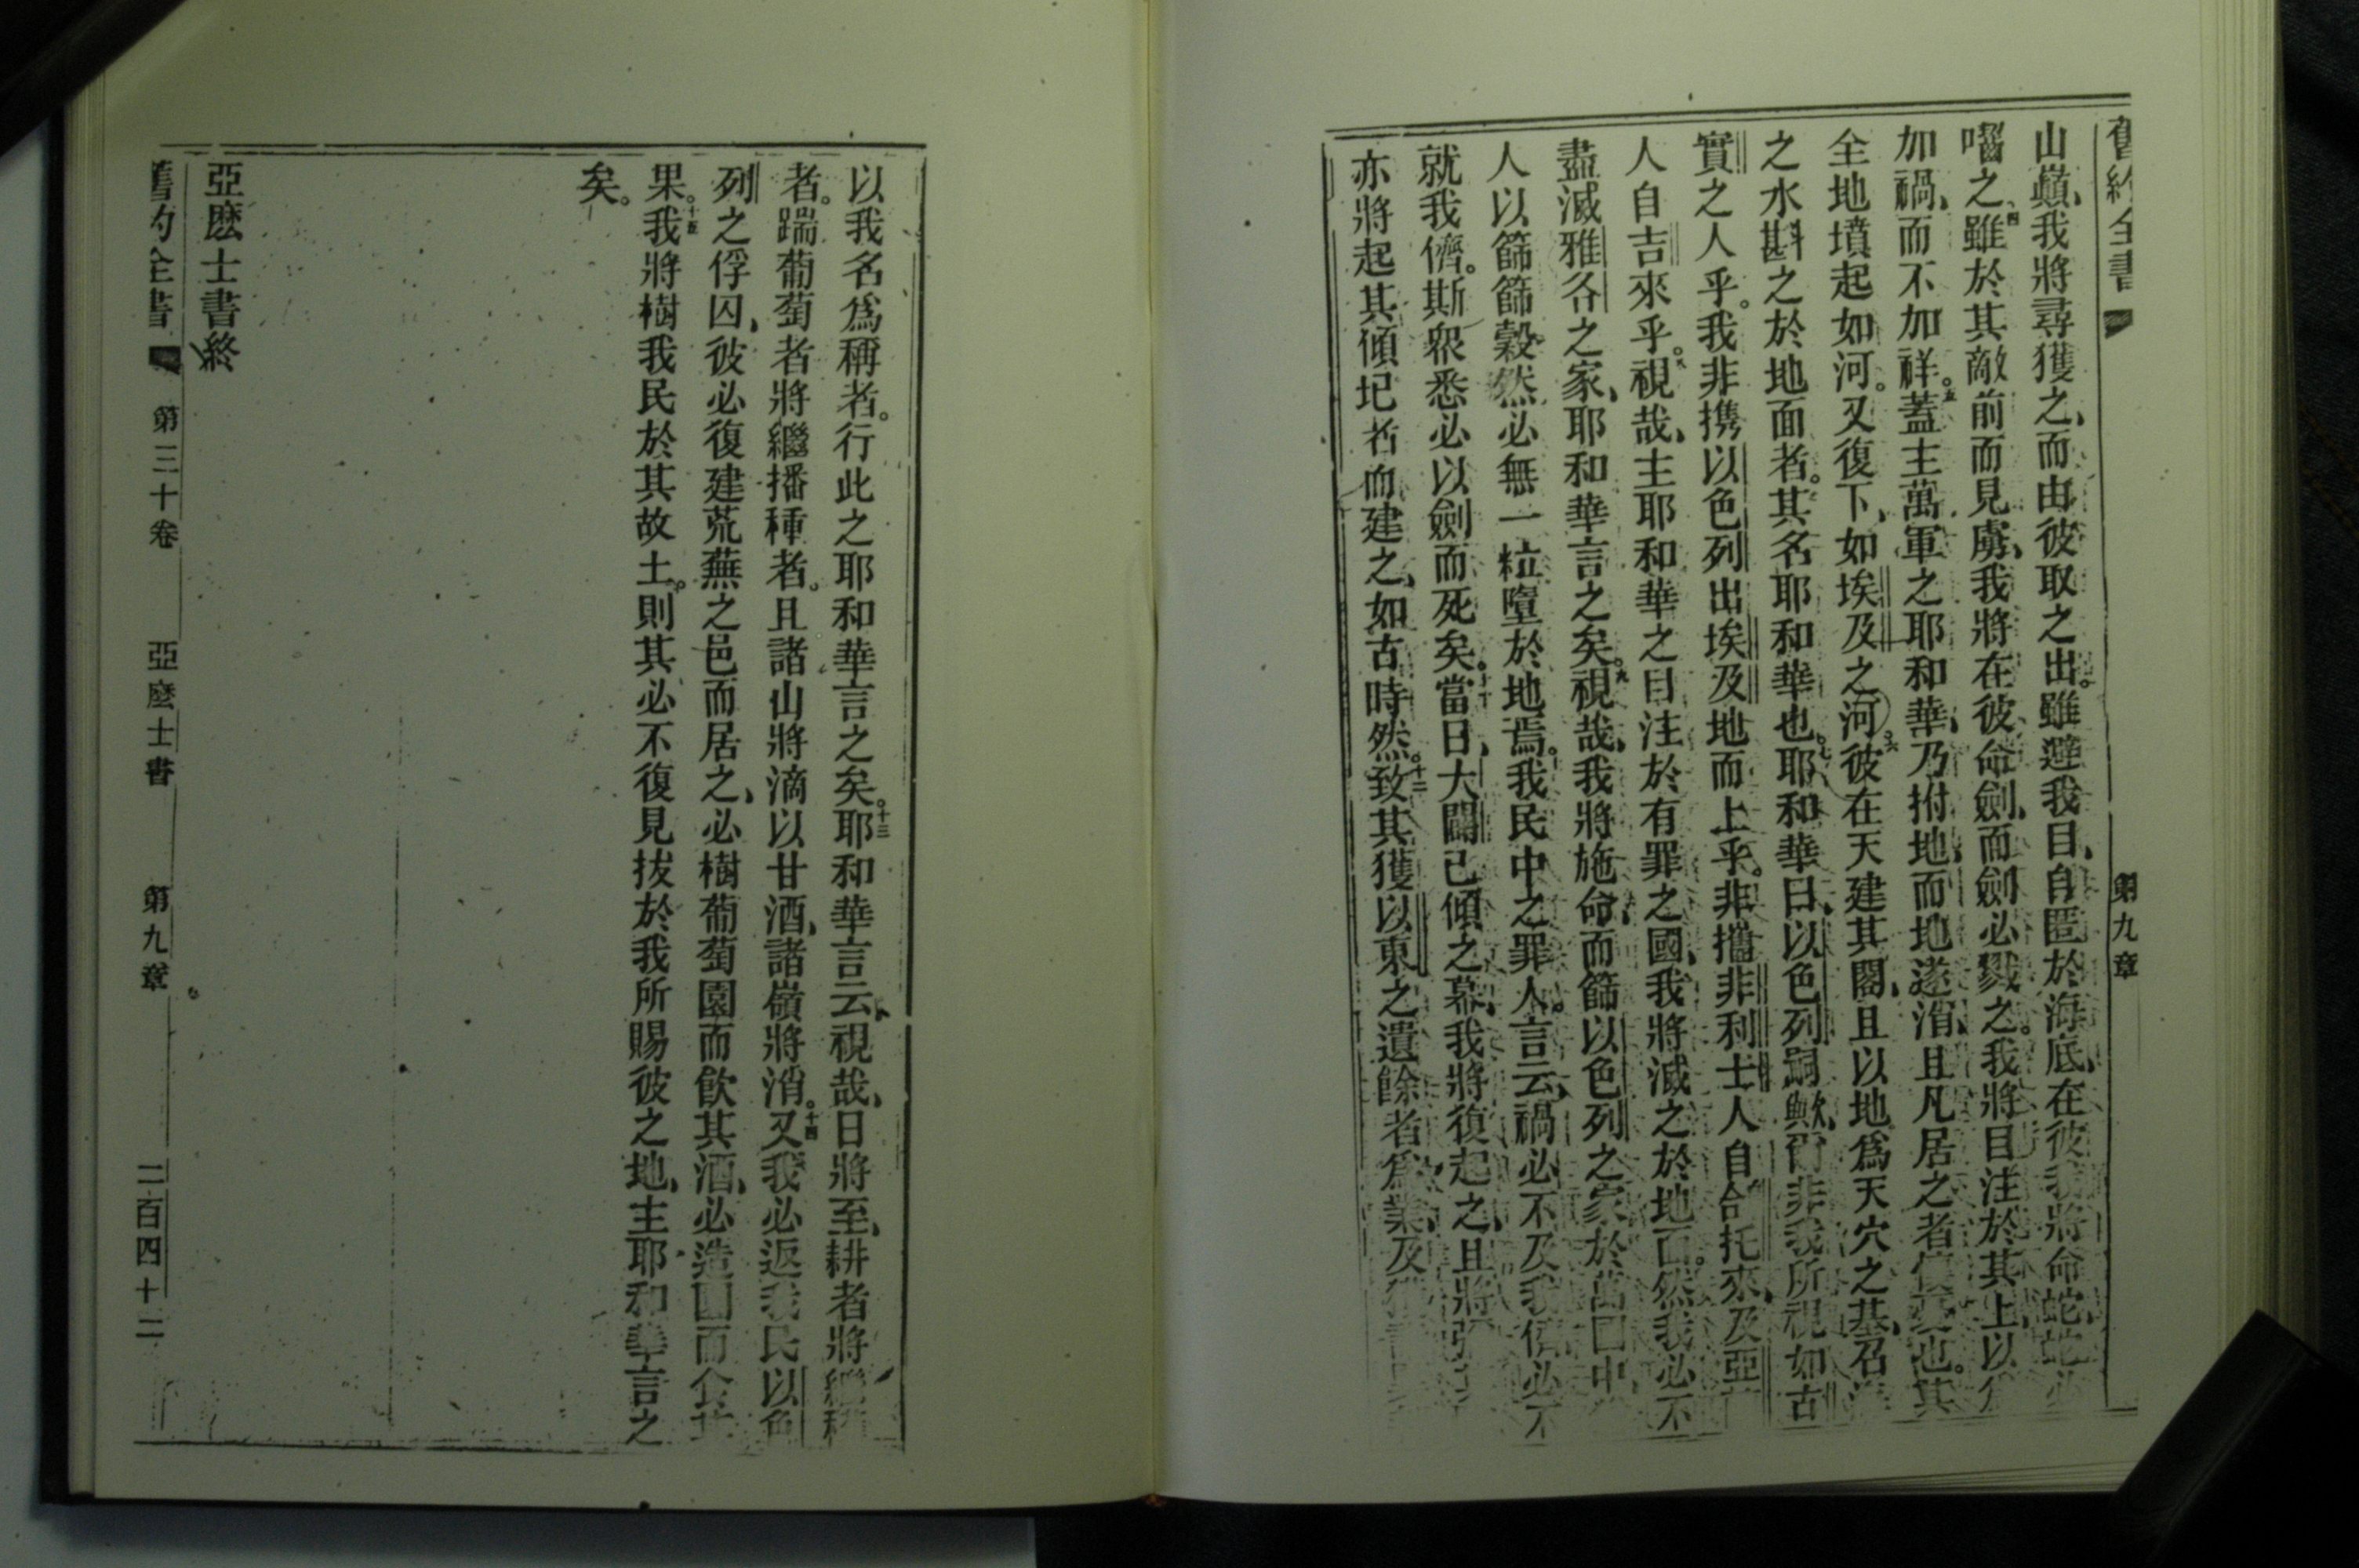 舊約全書 第九章
山巔、我將尋獲之、而由彼取之出。雖避我目、自匿於海底、在彼我將命蛇、蛇必
嚙之。四雖於其敵前而見虜、我將在彼命劍、而劍必戮之。我將目注於其上、以
加禍、而不加祥。五蓋主萬軍之耶和華、乃拊地、而地遂消、且凡居之者憂也。其
全地墳起如河。又復下、如埃及之河。六彼在天建其閣、且以地爲天穴之基、召海
之水斟之於地面者。其名耶和華也。七耶和華曰、以色列嗣歟、爾非我所視如古
實之人乎。我非携以色列出埃及地而上乎。非攜非利士人自合托來、及亞
人自吉來乎。八視哉、主耶和華之目注於有罪之國、我將滅之於地面。然我必不
盡滅雅各之家、耶和華言之矣。九視哉、我將施命、而篩以色列之家於萬囯中、
人以篩篩穀然、必無一粒墮於地焉。十我民中之罪人。言云、禍必不及我儕、必不
就我儕。斯衆悉必以劍而死矣。十一當日、大闢已傾之幕、我將復起之、且將
亦將起其傾圯者而建之、如古時然。十二致其獲以東之遺餘者爲業、及
以我名爲稱者。行此之耶和華言之矣。十三耶和華言云、視哉、日將至、耕者將繼
者。踹葡萄者將繼播種者。且諸山將滴以甘酒、諸嶺將消。十四又我必返我民以色
列之俘囚、彼必復建荒蕪之邑而居之、必樹葡萄園而飲其酒、必造園而食其
果。十五我將樹我民於其故土。則其必不復見拔於我所賜彼之地、主耶和華言之
矣。
亞麽士書終
舊約全書 第三十卷 亞麽士書 第九章 二百四十二